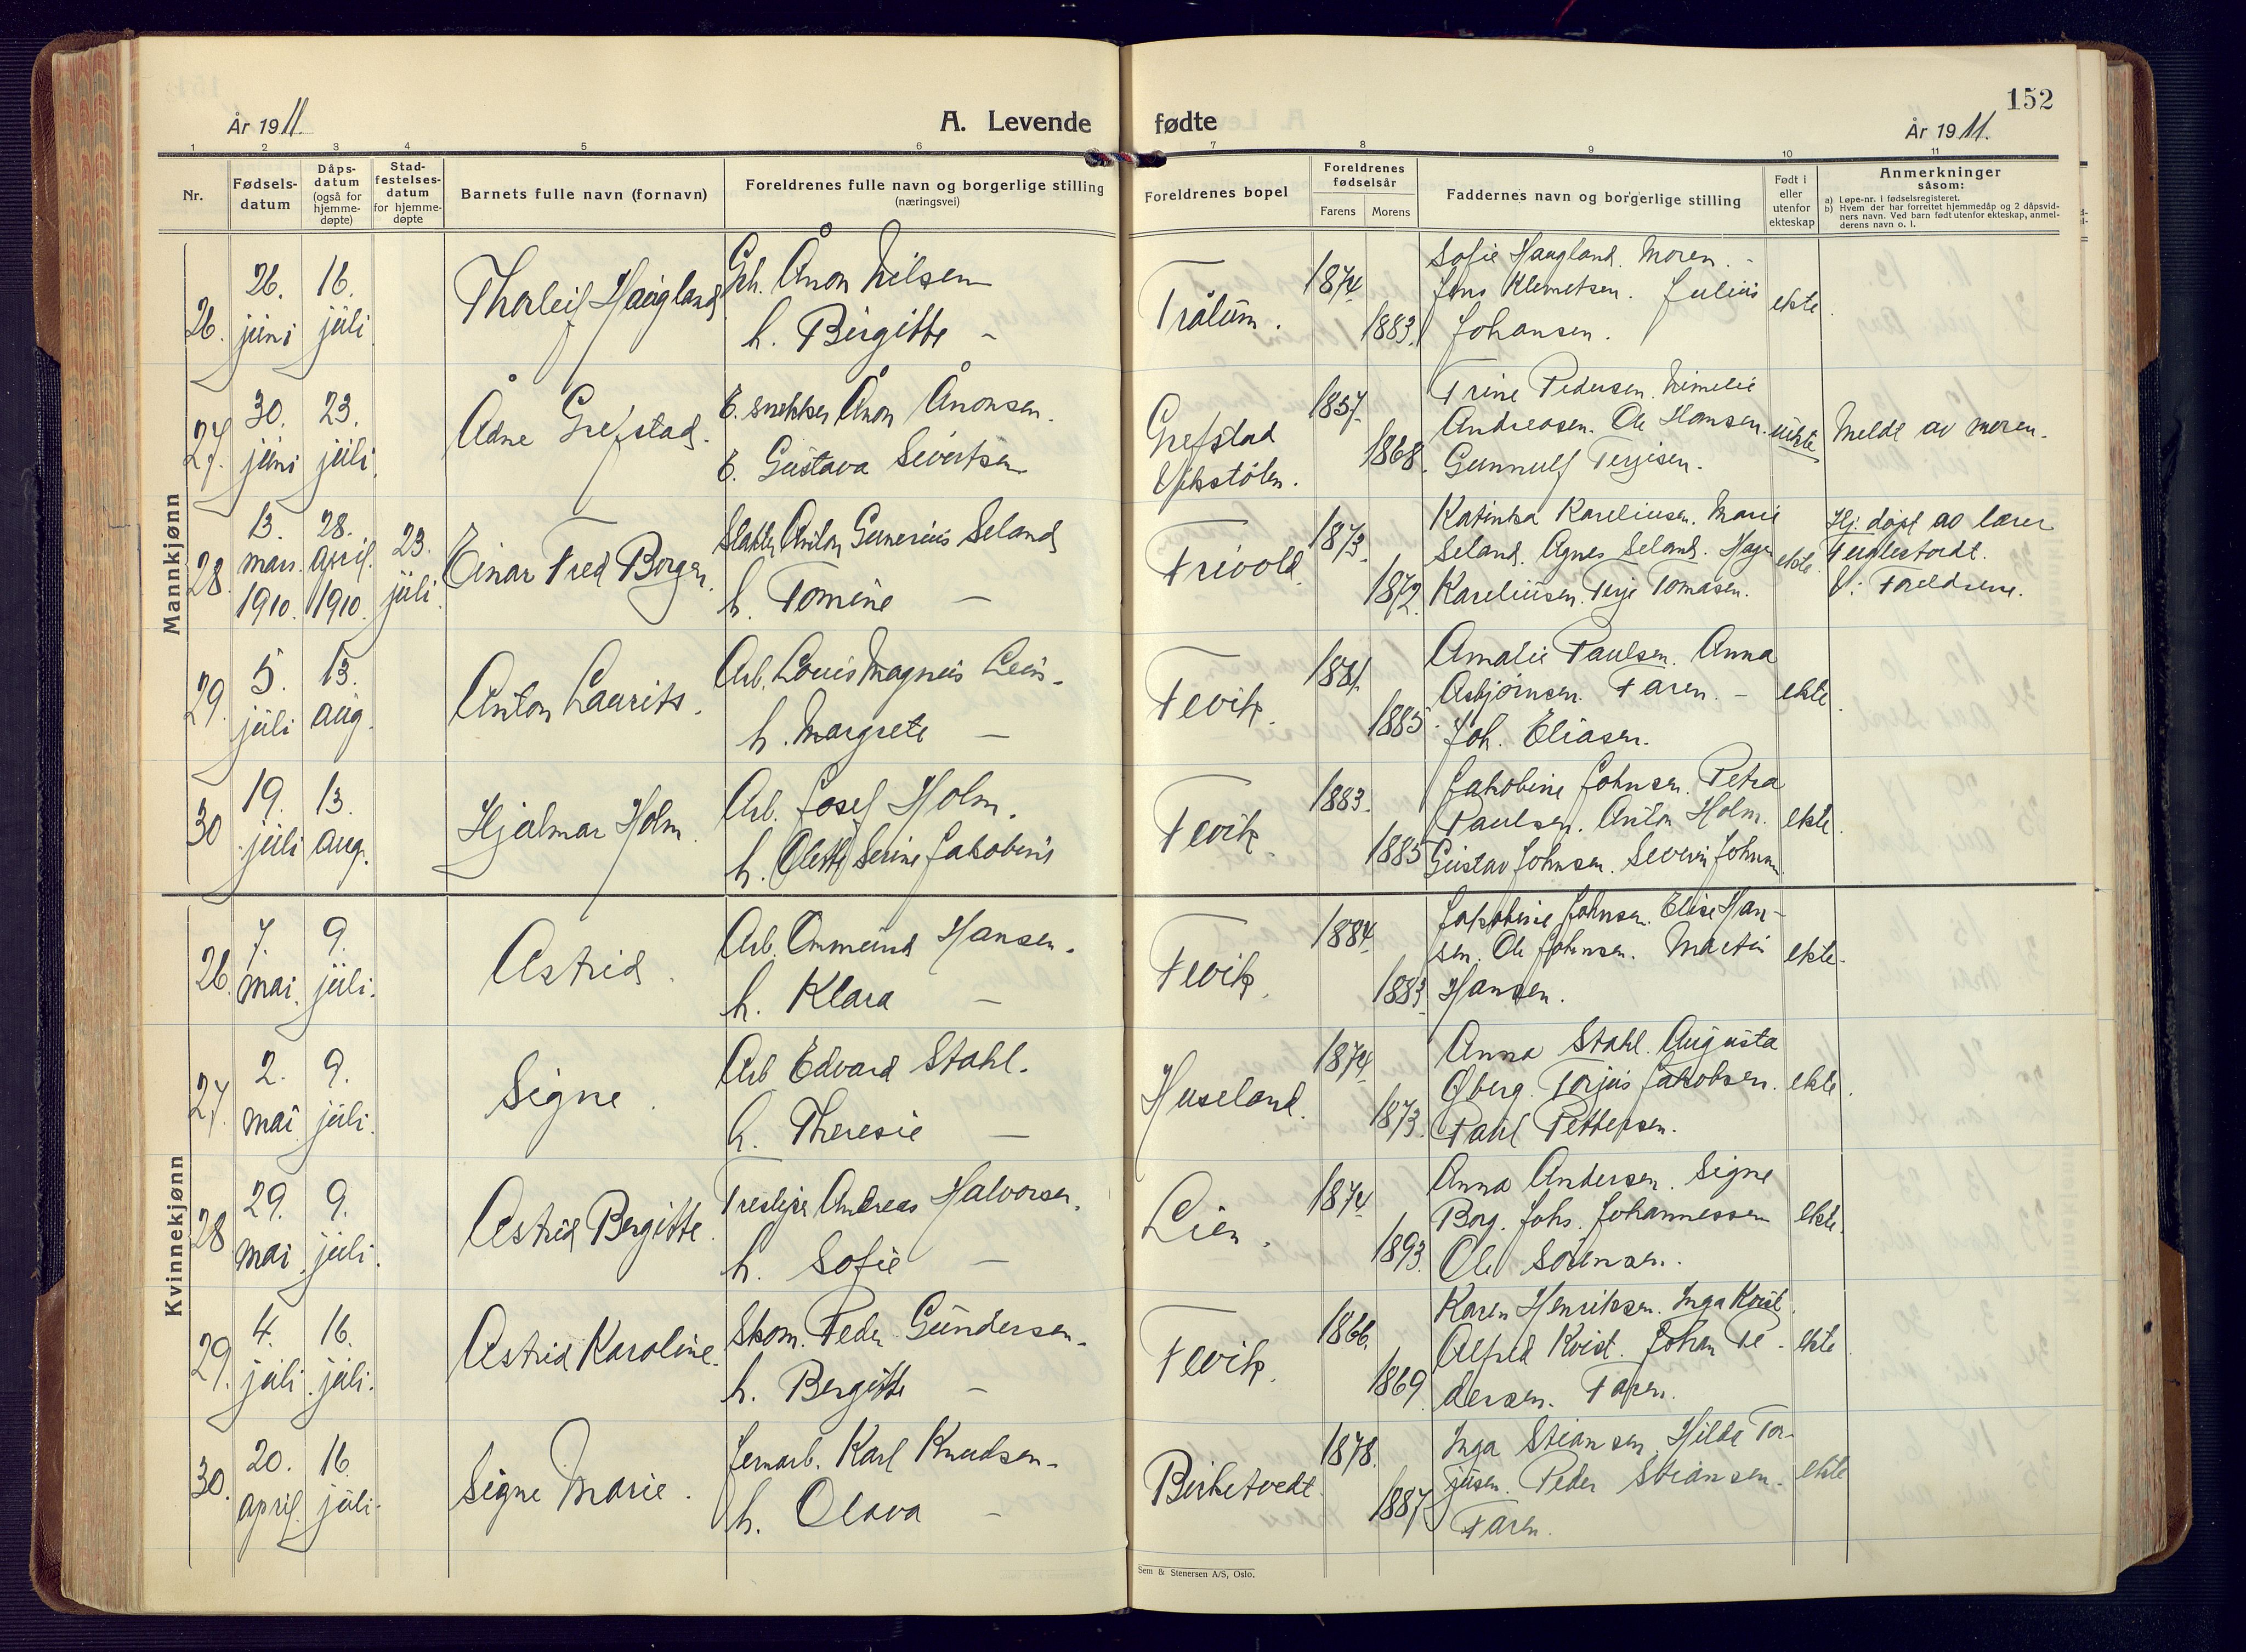 152
År 1911.
A. Levende
fødte
År 1911.
1 2 3 4 5 6 7 8 9 10 11
Nr.
Fødsels-
datum
Dåps-
datum
(også for
hjemme-
døpte)
Stad-
festelses-
datum
for hjemme-
døpte
Barnets fulle navn (fornavn)
Foreldrenes fulle navn og borgerlige stilling
(næringsvei)
Foreldrenes bopel
Foreldrenes
fødselsår
Farens
Morens
Faddernes navn og borgerlige stilling
Født i
eller
utenfor
ekteskap
Anmerkninger
såsom:
a) Løpe-nr. i fødselsregisteret.
b) Hvem der har forrettet hjemmedåp og 2 dåpsvid-
ners navn. Ved barn født utenfor ekteskap, anmel-
derens navn o. l.
Mannkjønn
26.
26.
juni
16.
juli
Thorleif Haugland
Gh. Ånon Nilsen
h. Birgitte -
Trålum.
1874
1883.
Sofie Haugland. Moren. -
Jens Klemetsen. Julius
Johansen.
ekte
27.
30.
juni
23.
juli
Ådne Grefstad.
E. snekker Ånon Ånonsen.
E. Gustava Sivertsen
Grefstad
Vikstølen.
1857
1868.
Trine Pedersen.
Andreasen. Ole Hansen.
Gunnulf Terjesen.
uekte
Meldt av moren.
28.
13.
mars.
1910.
28.
april.
1910
23.
juli.
Einar Fred Borger.
Anton Gunerius Seland
h. Tomine -
Frivold.
1873.
1872.
Katinka Kareliusen. Marie
Seland. Agnes Seland.
Kareliusen. Terje Tomasen.
ekte.
Hj. døpt av lærer
V: Foreldrene.
29.
5.
juli
13.
aug.
Anton Laurits.
Arb. Louis Magnus
h. Margrete -
Fevik.
1881.
1885.
Amalie Paulsen. Anna
Asbjørnsen. Faren. -
Joh. Eliasen.
ekte
30
19.
juli
13.
aug.
Hjalmar Holm.
Arb. Josef Holm.
h. Olette Serine Jakobine
Fevik.
1883.
1885
Jakobine Johnsen. Petra
Paulsen. Anton Holm.
Gustav Johnsen. Severin Johnsen
ekte.
Kvinnekjønn
26.
7.
mai.
9.
juli.
Astrid.
Arb. Ommund Hansen.
h. Klara -
Fevik.
1884.
1883
Jakobine Johnsen. Elise Han-
sen. Ole Johnsen. Martin
Hansen.
ekte.
27.
2.
mai
9.
juli.
Signe.
Arb Edvard Stahl.
h. Theresie -
Huseland.
1874
1873.
Anna Stahl. Augusta
Øberg. Torjus Jakobsen.
Paul Pettersen.
ekte.
28
29.
mai.
9.
juli.
Astrid Bergitte.
Andreas Halvorsen.
h. Sofie -
Lien.
1874
1893.
Anna Andersen. Signe
Borg. Johs. Johannessen
Ole Sørensen.
ekte.
29.
4.
juli.
16.
juli.
Astrid Karoline.
Skom. Peder Gundersen.
h. Bergitte -
Fevik.
1866.
1869
Karen Henriksen. Inga Kvist.
Alfred Kvist. Johan Pe-
dersen. Faren.
ekte
30.
20.
april.
16.
juli.
Signe Marie.
Jernarb. Karl Knudsen.
h. Olava -
Birketvedt
1878.
1887
Inga Stiansen. Hilda Tor-
jusen. Peder Stiansen.
Faren.
ekte
Sem & Stenersen A/S, Oslo.